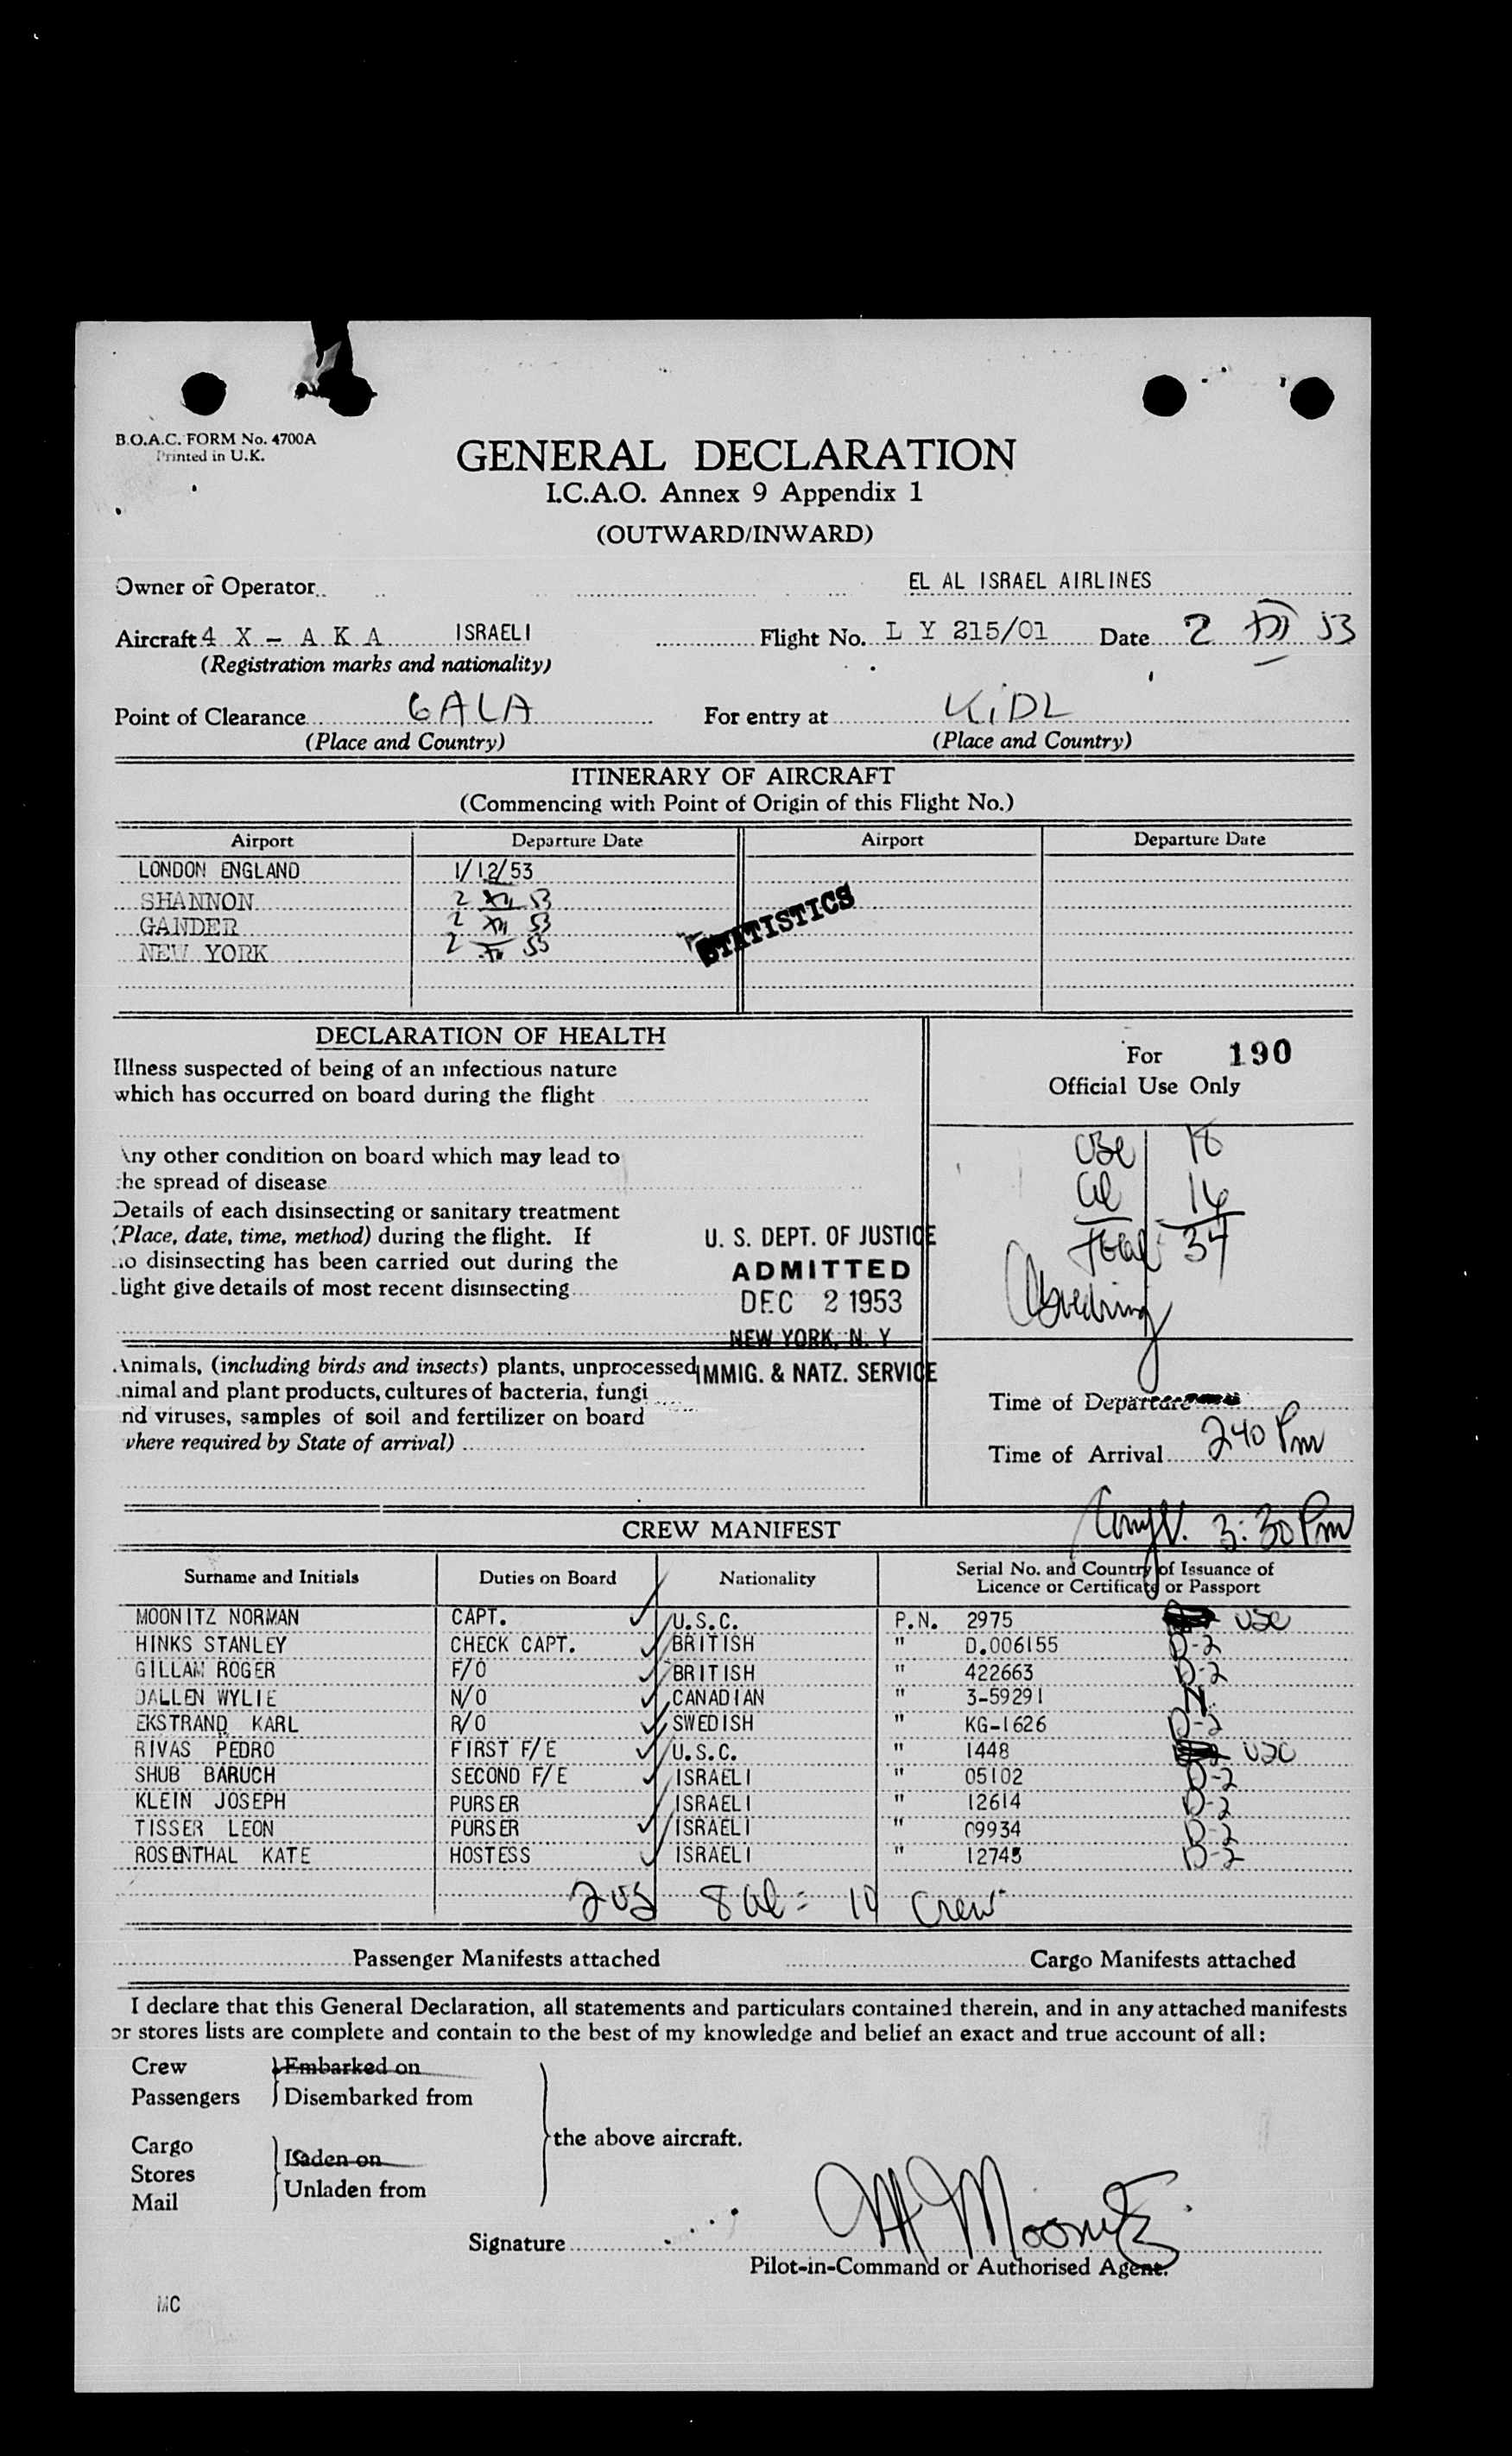 B.O.A.C. FORM No. 4700A
Printed in U.K.
GENERAL DECLARATION
I.C.A.O. Annex 9 Appendix 1
(OUTWARD/INWARD)
Owner or Operator EL AL ISRAEL AIRLINES
Aircraft 4 X - A K A ISRAELI Flight No. L Y 215/01 Date 2 XII 53
(Registration marks and nationality)
Point of Clearance GALA For entry at KIDL
(Place and Country) (Place and Country)
ITINERARY OF AIRCRAFT
(Commencing with Point of Origin of this Flight No.)
Airport Departure Date Airport Departure Date
LONDON ENGLAND 1/12/53
SHANNON 2 XII 53
GANDER 2 XII 53
NEW YORK 2 XII 53
STATISTICS
DECLARATION OF HEALTH
For 190
Official Use Only
Illness suspected of being of an infectious nature
which has occurred on board during the flight
Any other condition on board which may lead to
the spread of disease
Details of each disinsecting or sanitary treatment
(Place, date, time, method) during the flight. If
no disinsecting has been carried out during the
light give details of most recent disinsecting
U. S. DEPT. OF JUSTICE
ADMITTED
DEC 2 1953
NEW YORK, N. Y
IMMIG. & NATZ. SERVICE
USC 18
Al 16
Total 34
Animals, (including birds and insects) plants, unprocessed
nimal and plant products, cultures of bacteria, fungi
nd viruses, samples of soil and fertilizer on board
where required by State of arrival)
Time of Departure
Time of Arrival 240 Pm
3:30 Pm
CREW MANIFEST
Surname and Initials Duties on Board Nationality Serial No. and Country of Issuance of Licence or Certificate or Passport
MOONITZ NORMAN CAPT. U.S.C. P.N. 2975 USC
HINKS STANLEY CHECK CAPT. BRITISH " D.006155 D-2
GILLAM ROGER F/O BRITISH " 422663 D-2
DALLEN WYLIE N/O CANADIAN " 3-59291 N
EKSTRAND KARL R/O SWEDISH " KG-1626 D-2
RIVAS PEDRO FIRST F/E U.S.C. " 1448 USC
SHUB BARUCH SECOND F/E ISRAELI " 05102 D-2
KLEIN JOSEPH PURSER ISRAELI " 12614 D-2
TISSER LEON PURSER ISRAELI " 09934 D-2
ROSENTHAL KATE HOSTESS ISRAELI " 12745 D-2
2 US 8 Al = 10 Crew
Passenger Manifests attached Cargo Manifests attached
I declare that this General Declaration, all statements and particulars contained therein, and in any attached manifests
or stores lists are complete and contain to the best of my knowledge and belief an exact and true account of all:
Crew Embarked on
Passengers Disembarked from
the above aircraft.
Cargo Laden on
Stores Unladen from
Mail
Signature M Moonitz
Pilot-in-Command or Authorised Agent.
MC